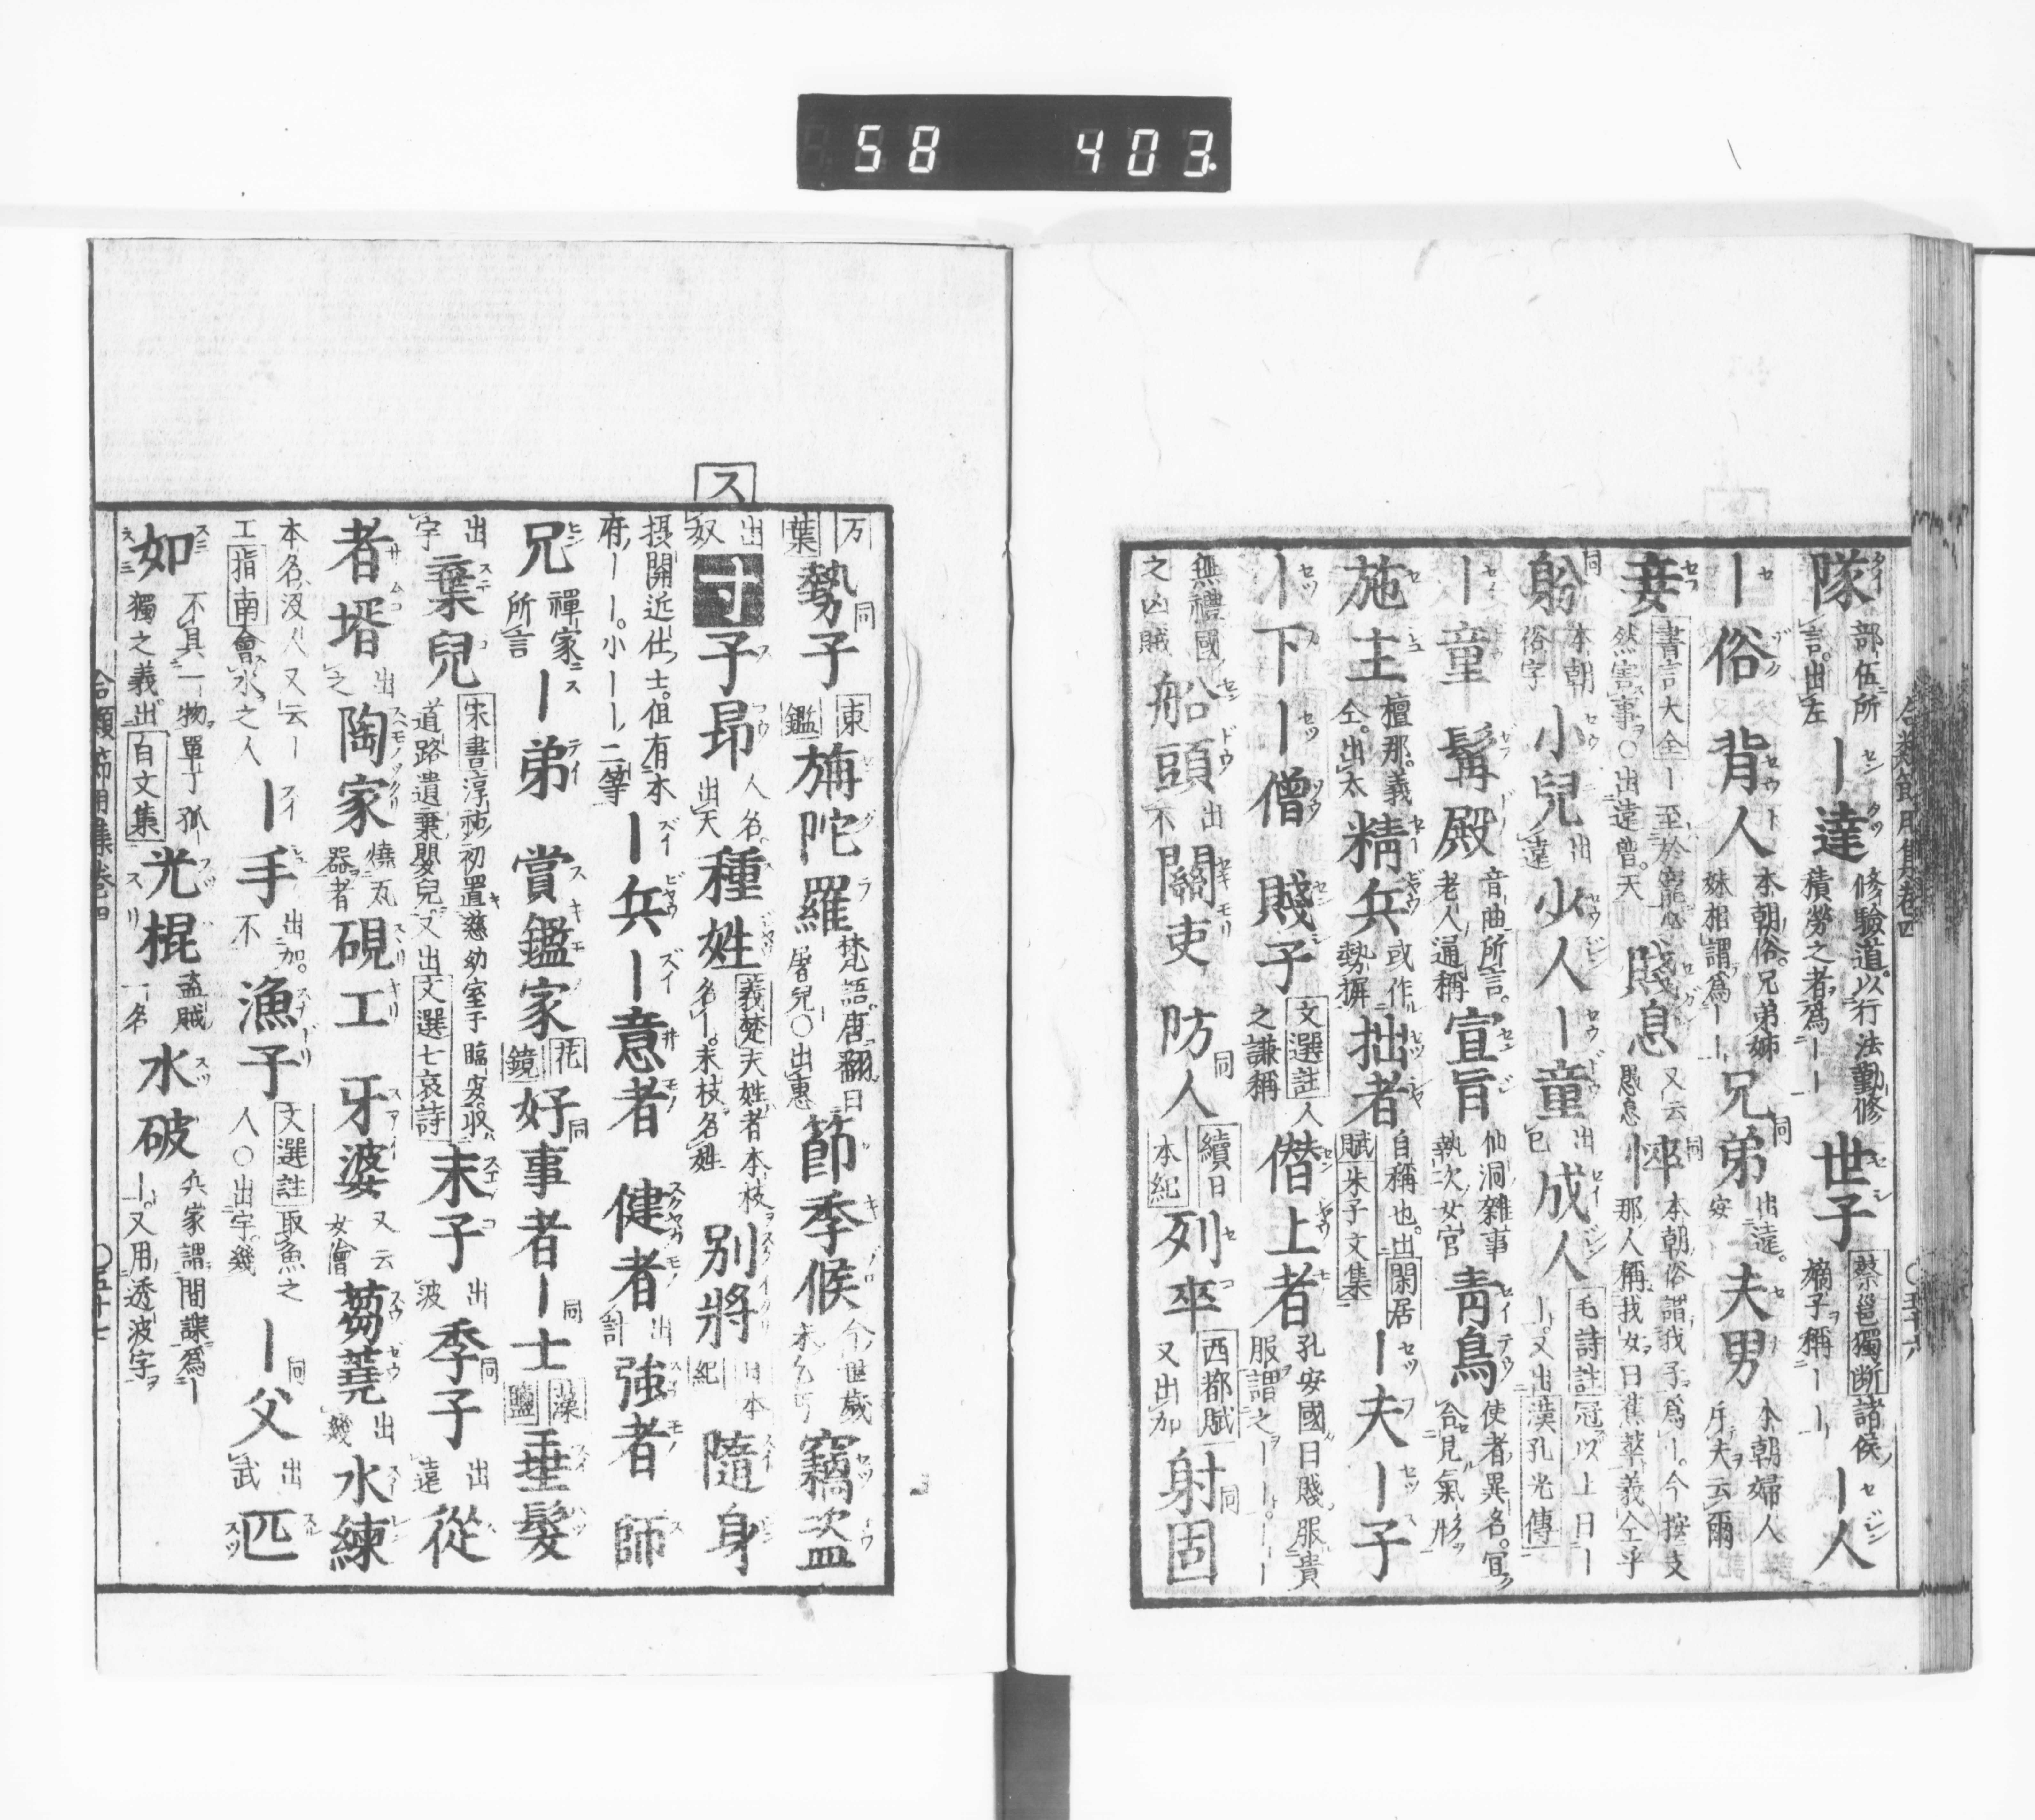 58 403
隊 部伍所言。出左 ー達 修驗道。以行法勤修積勞之者爲ーー 世子 蔡邕獨断諸侯嫡子稱ーー ー人
ー俗 背人 本朝俗。兄弟姉妹相謂爲ーー 兄弟 同 出遠。安 夫男 本朝婦人斥夫云爾
妾 書言大全ー至於寵必然害事〇出遠曽。天 賤息 又云愚息 悴 同 本朝俗謂我子爲ー。今按支那人稱我女曰蕉萃義仝乎
躮 同 本朝俗字 小兒 出遠 少人 ー童 出已 成人 毛詩註冠以上曰ーー。又出漢孔光傳
ー童 髯殿 音曲所言。老人通稱 宣旨 仙洞雑事執次女官 青鳥 使者異名。冝合見氣形
施主 檀那。義仝。出太 精兵 或作勢摒 拙者 自稱也。出閑居賦朱子文集 ー夫 ー子
ー下 ー僧 賤子 文選註人之謙稱 僣上者 孔安國曰賤服貴服謂之ーー。ーー
無禮國之凶賊 船頭 出不 關吏 防人 同 續日本紀 列卒 西都賦又出加 射固 同
合類節用集卷四 〇五十六
ス
万葉 勢子 同 東鑑 旃陀羅 梵語。唐翻曰屠兒〇出惠 節季候 今世歳末乞丐 竊盗
出奴 寸 子昂 人名。出天 種姓 義楚天姓者本枝名ー。末枝名姓 別將 日本紀 隨身
摂関近仕士。但有本府ーー。小ーー二等 ー兵 ー意者 健者 出計 強者 師
兄 禪家所言 ー弟 賞鑑家 花鏡 好事者 同 ー士 同 藻鹽 垂髪
出字 棄兒 宋書淳祐初置慈幼室于臨安。收道路遺棄嬰兒又出文選七哀詩 末子 出波 季子 同 出遠 從
者 壻 出之 陶家 燒瓦器者 硯工 牙婆 又云女儈 芻蕘 出幾 水練
本名没人又云ー工指南會水之人 ー手 出加。不 漁子 文選註取魚之人〇出宇。幾 ー父 同 出武 匹
如 不具一物單丁孤獨之義出白文集 光棍 盗賊一名 水破 兵家謂間諜爲ーー。又用透波字
合類節用集卷四 〇五十七